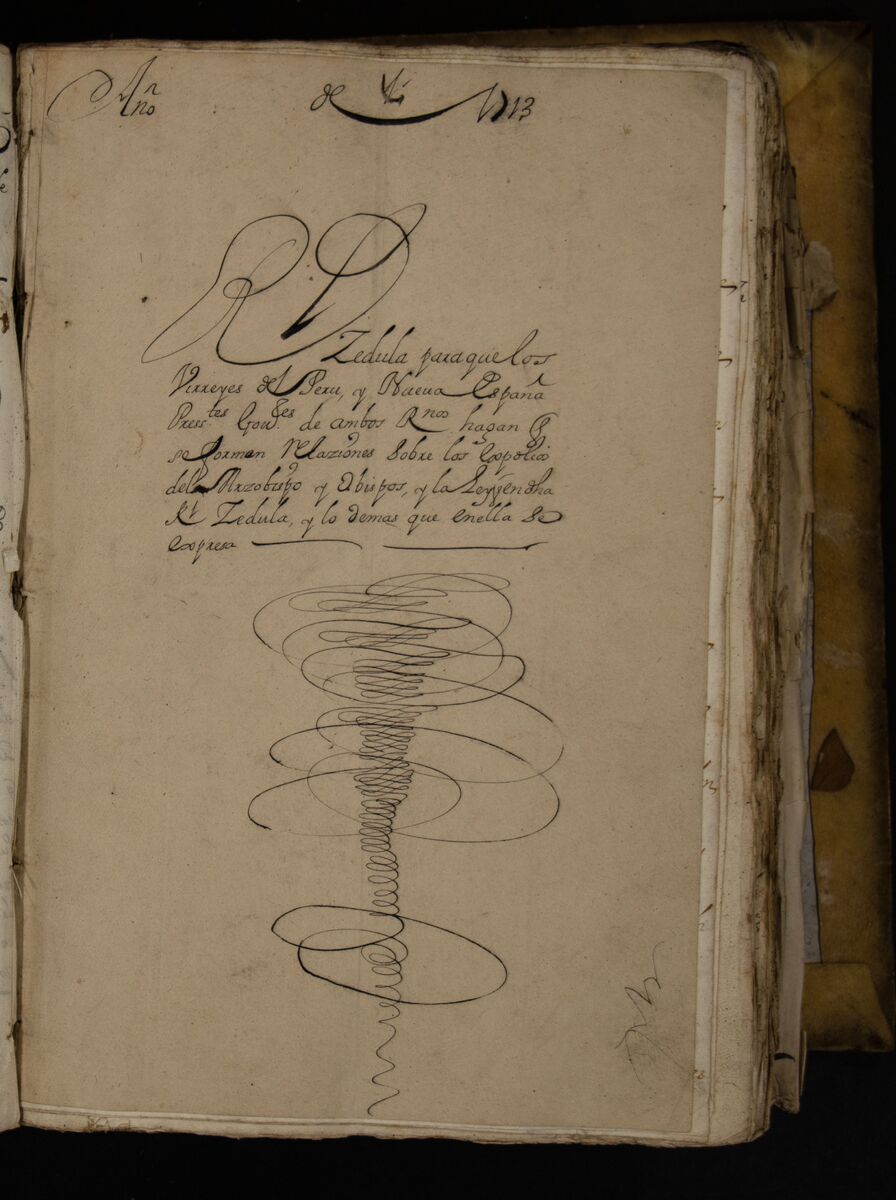 Año de 1713
Rl
Zedula para que los
Virreyes del Peru, y Nueva Españā
Press.tes Gov.res de ambos Rnos hagan q
se formen Relaziones sobre los expolios
dels Arzobispo y Obispos, y la Ley en dha
Rl Zedula, y lo demas que enella se
expresa